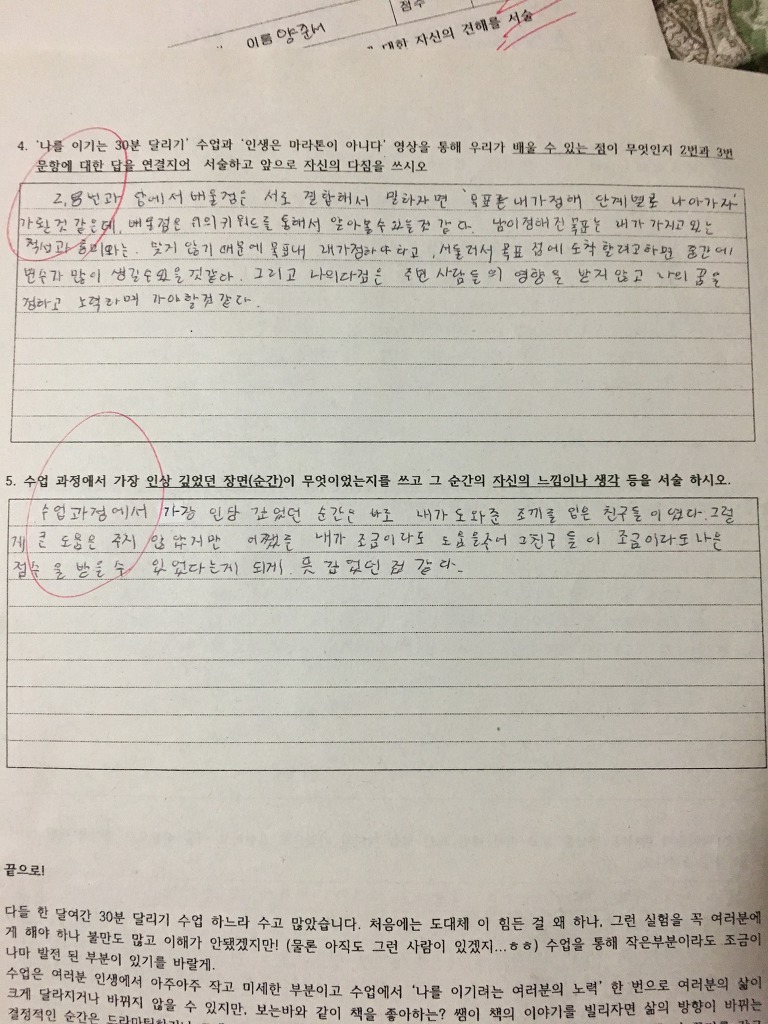 점수
이름 양준서
대한 자신의 견해를 서술
4. '나를 이기는 30분 달리기' 수업과 '인생은 마라톤이 아니다' 영상을 통해 우리가 배울 수 있는 점이 무엇인지 2번과 3번
문항에 대한 답을 연결지어 서술하고 앞으로 자신의 다짐을 쓰시오
2,3번과 앞에서 배울점은 서로 결합해서 말하자면 '목표는 내가정해 단계별로 나아가자'
가될것 같은데, 배울점은 위의키워드를 통해서 알아볼수있는것 같다. 남이정해진 목표는 내가 가지고있는
적성과 흥미와는 맞지 않기 때문에 목표내 내가정하야 하고, 서둘러서 목표 점에 도착 할려고하면 중간에
변수가 많이 생길수있을것같다. 그리고 나의다짐은 주변 사람들의 영향을 받지 않고 나의 꿈을
정하고 노력하며 가야할것같다.
5. 수업 과정에서 가장 인상 깊었던 장면(순간)이 무엇이었는지를 쓰고 그 순간의 자신의 느낌이나 생각 등을 서술 하시오.
수업과정에서 가장 인상 깊었던 순간은 바로 내가 도와준 조끼를 입은 친구들이였다. 그렇
게 큰 도움은 주지 않았지만 어쨌든 내가 조금이라도 도움을주어 그친구들이 조금이라도 나은
점수을 받을수 있었다는게 되게 뜻 깊었던 것 같다.
끝으로!
다들 한 달여간 30분 달리기 수업 하느라 수고 많았습니다. 처음에는 도대체 이 힘든 걸 왜 하나, 그런 실험을 꼭 여러분에
게 해야 하나 불만도 많고 이해가 안됐겠지만! (물론 아직도 그런 사람이 있겠지...ㅎㅎ) 수업을 통해 작은부분이라도 조금이
나마 발전 된 부분이 있기를 바랄게.
수업은 여러분 인생에서 아주아주 작고 미세한 부분이고 수업에서 '나를 이기려는 여러분의 노력' 한 번으로 여러분의 삶이
크게 달라지거나 바뀌지 않을 수 있지만, 보는바와 같이 책을 좋아하는? 쌤이 책의 이야기를 빌리자면 삶의 방향이 바뀌는
결정적인 순간은